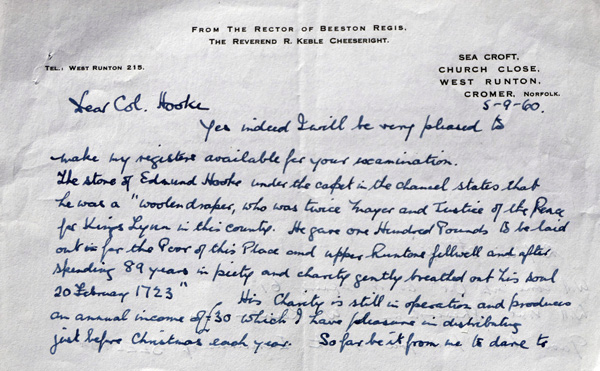 FROM THE RECTOR OF BEESTON REGIS.
THE REVEREND R. KEBLE CHEESERIGHT.
TEL.: WEST RUNTON 215.
SEA CROFT,
CHURCH CLOSE,
WEST RUNTON,
CROMER, NORFOLK.
5-9-60.
Dear Col. Hooke
Yes indeed I will be very pleased to
make my registers available for your examination.
The stone of Edmund Hooke under the carpet in the chancel states that
he was a "woolendraper, who was twice Mayor and Justice of the Peace
for Kings Lynn in this county. He gave one Hundred Pounds to be laid
out in for the Poor of this Place and upper Runtons and after
spending 89 years in piety and charity gently breathed out his soul
20 February 1723" His Charity is still in operation and produces
an annual income of £30 which I have pleasure in distributing
just before Christmas each year. So far be it from me to dare to